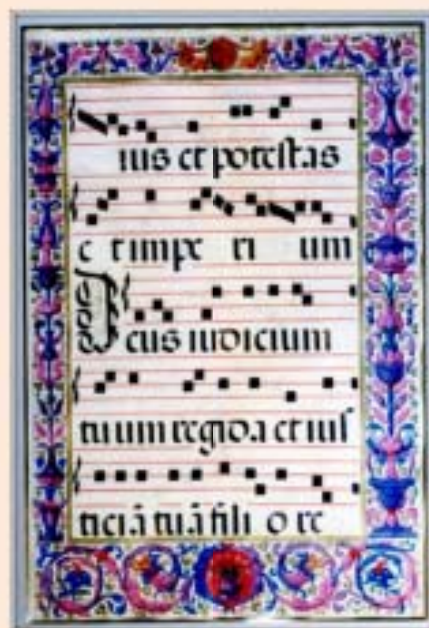 ius et potestas
et impe ri um
Deus iudicium
tuum regi da et ius
ticiā tuā fili o re